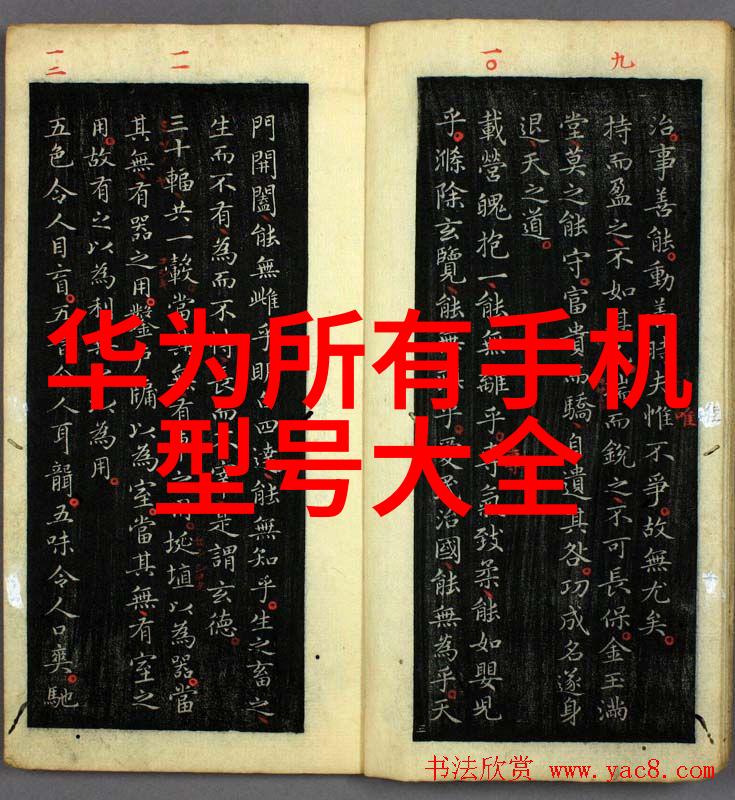 一二
一一
一〇
九
治事善能動善時夫惟不爭故無尤矣
唯
持而盈之不如其揣而銳之不可長保金玉滿
堂莫之能守富貴而驕自遺其咎功成名遂身
退天之道
載營魄抱一能無離乎專氣致柔能如嬰兒
乎滌除玄覽能無乎愛民治國能無為乎天
門開闔能無雌乎明白四達能無知乎生之畜之
生而不有為而不恃長而不宰是謂玄德
三十輻共一轂當其無有車之用挻埴以為器當
其無有器之用鑿戶牖以為室當其無有室之
用故有之以為利以為用
五色令人目盲五音令人耳聾五味令人口爽馳
华为所有手机
型号大全
书法欣赏 www.yac8.com